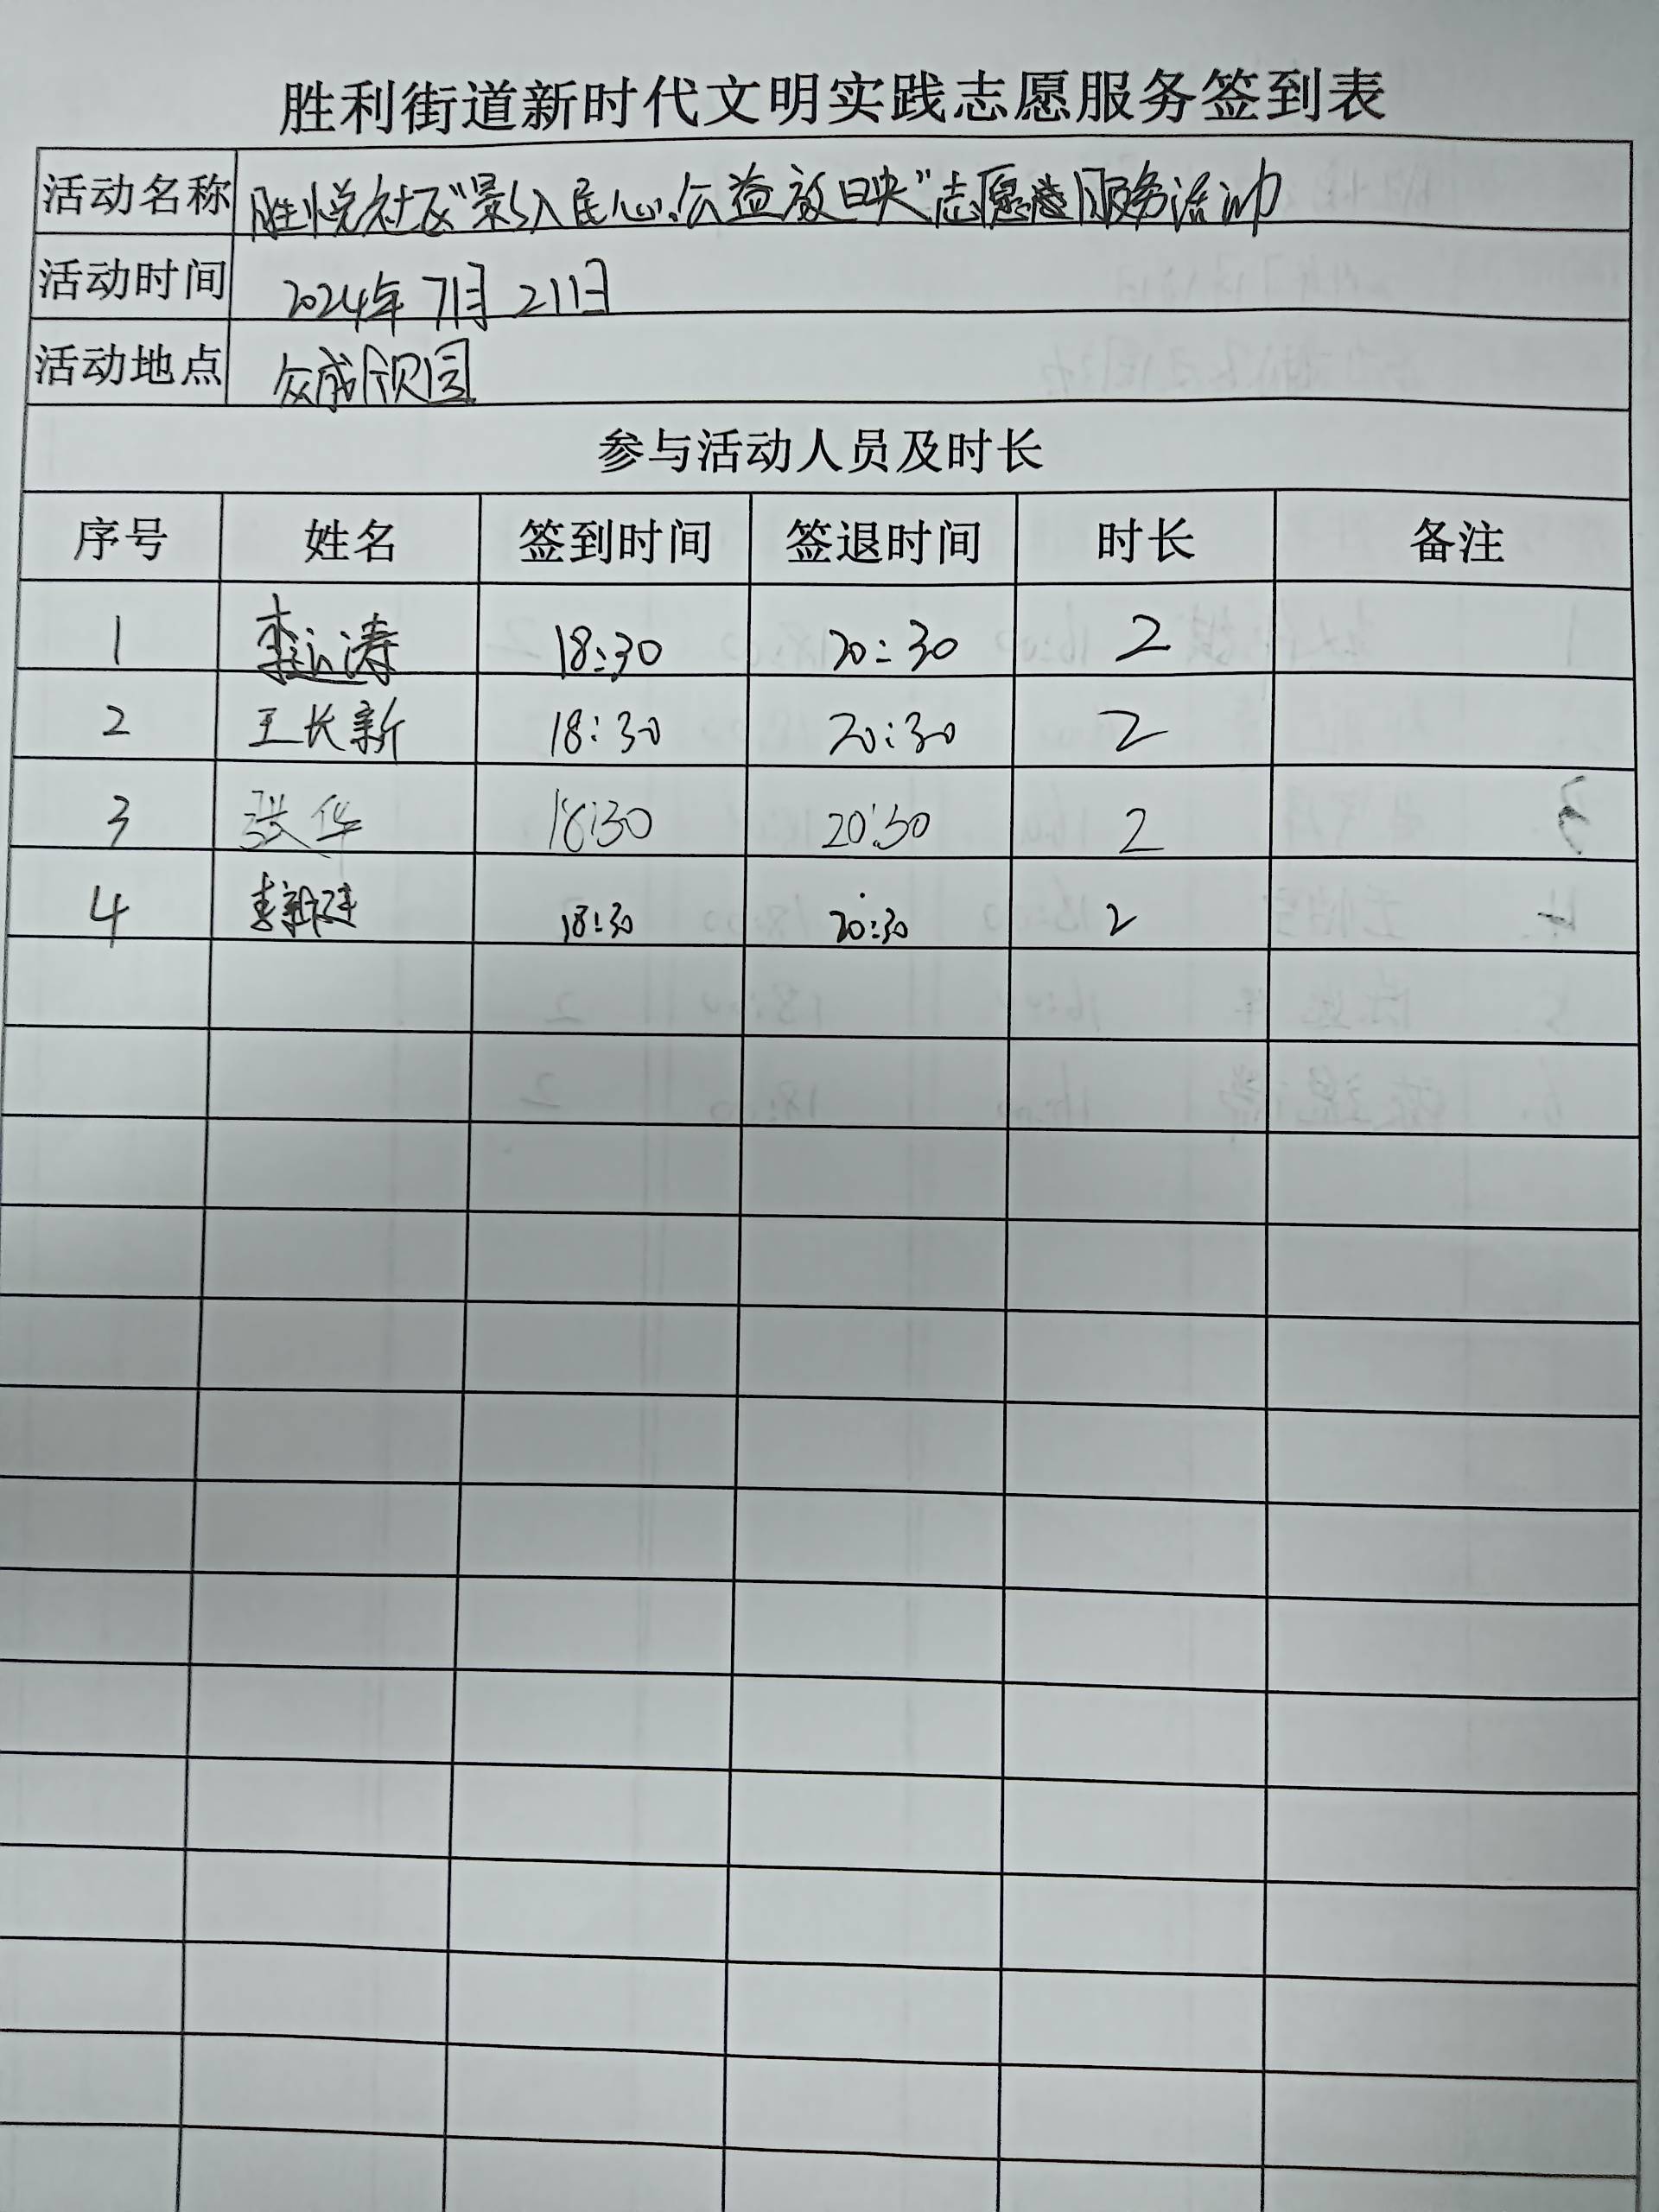 胜利街道新时代文明实践志愿服务签到表
活动名称 胜悦社区“影入民心.公益放映”志愿服务活动
活动时间 2024年7月21日
活动地点 众成颐园
参与活动人员及时长
序号 姓名 签到时间 签退时间 时长 备注
1 李运涛 18:30 20:30 2
2 王长新 18:30 20:30 2
3 张华 18:30 20:30 2
4 李新建 18:30 20:30 2